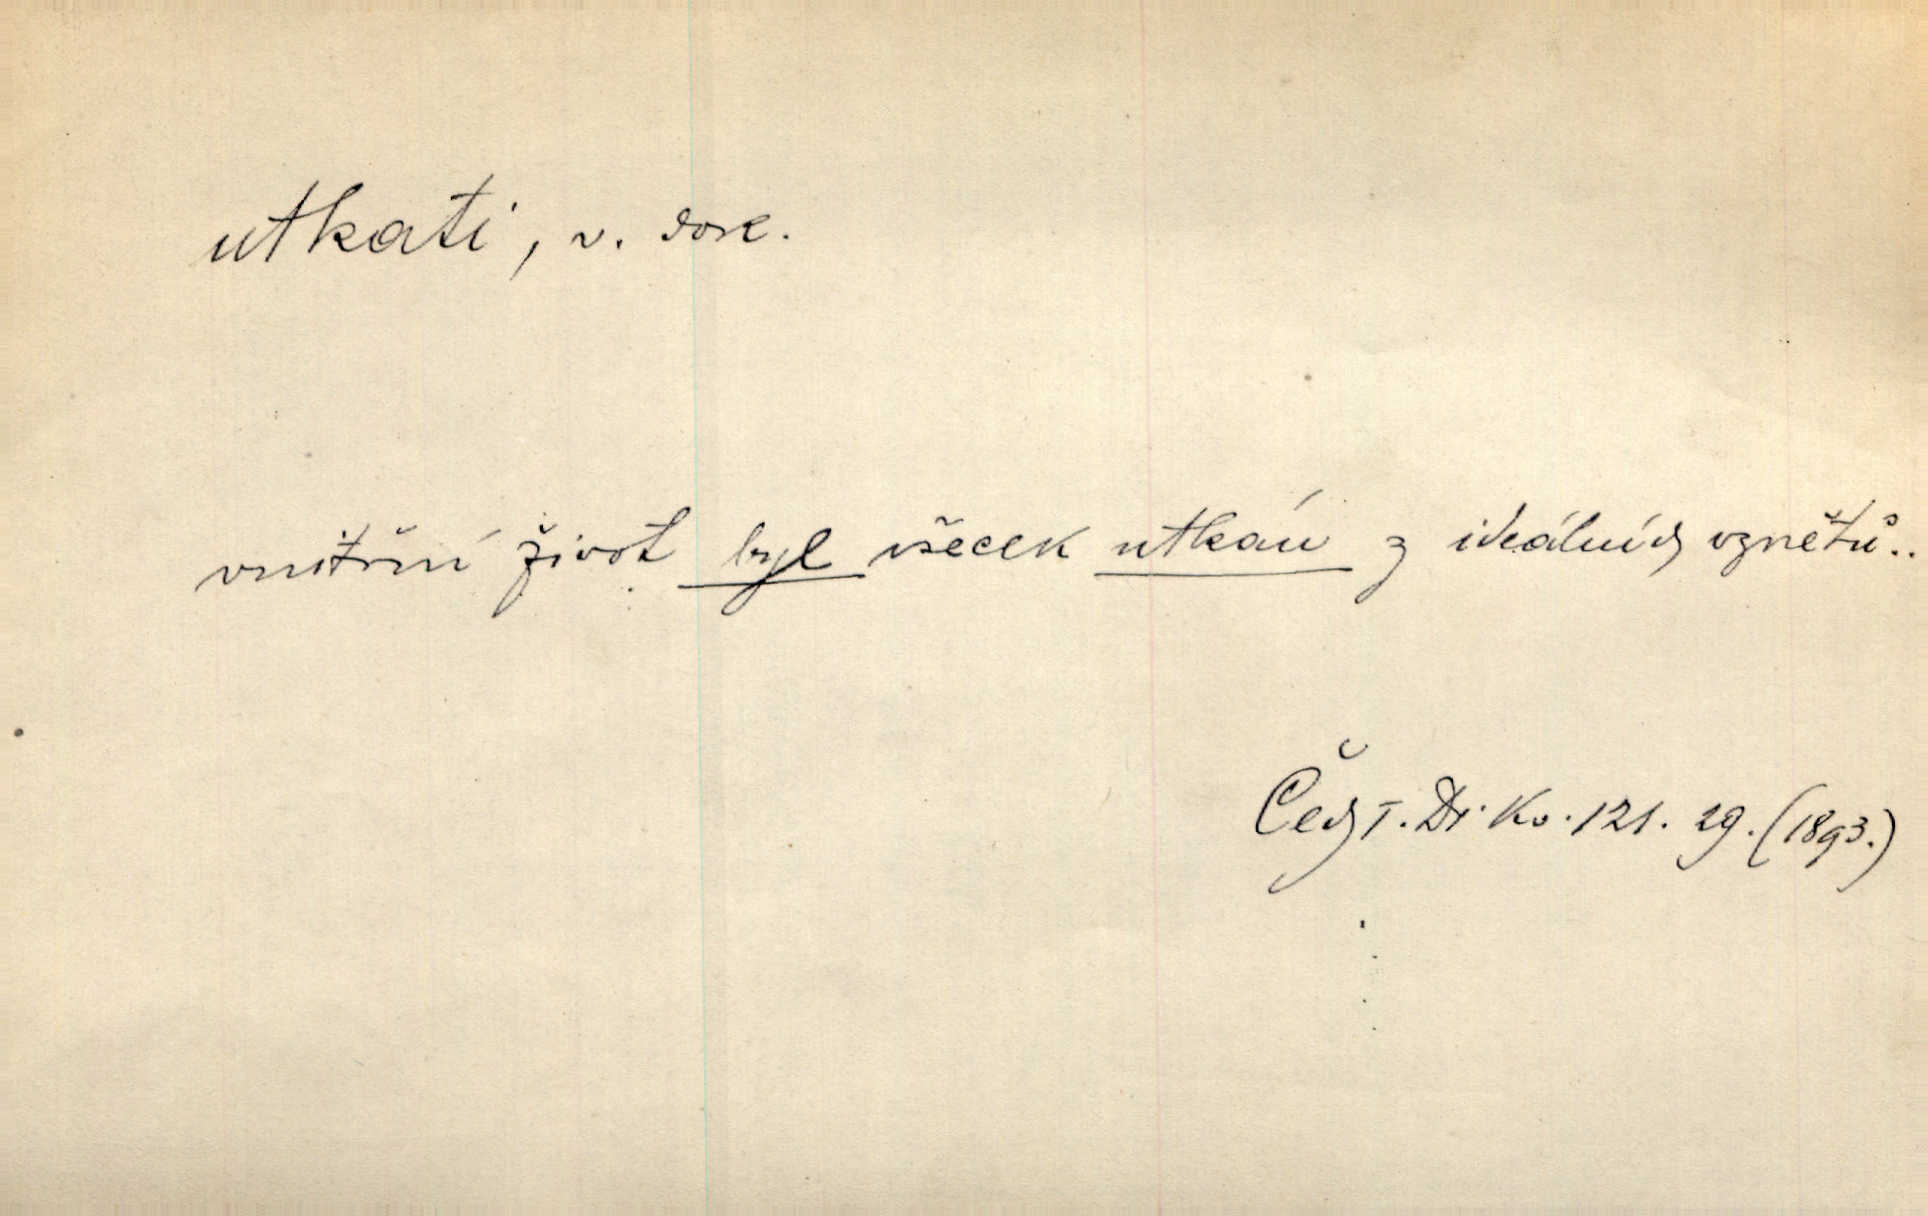 utkati, v. dok.
vnitřní život byl všecek utkán z ideálních vznětů..
Čech T. Dr. Kv. 121. 29. (1893.)